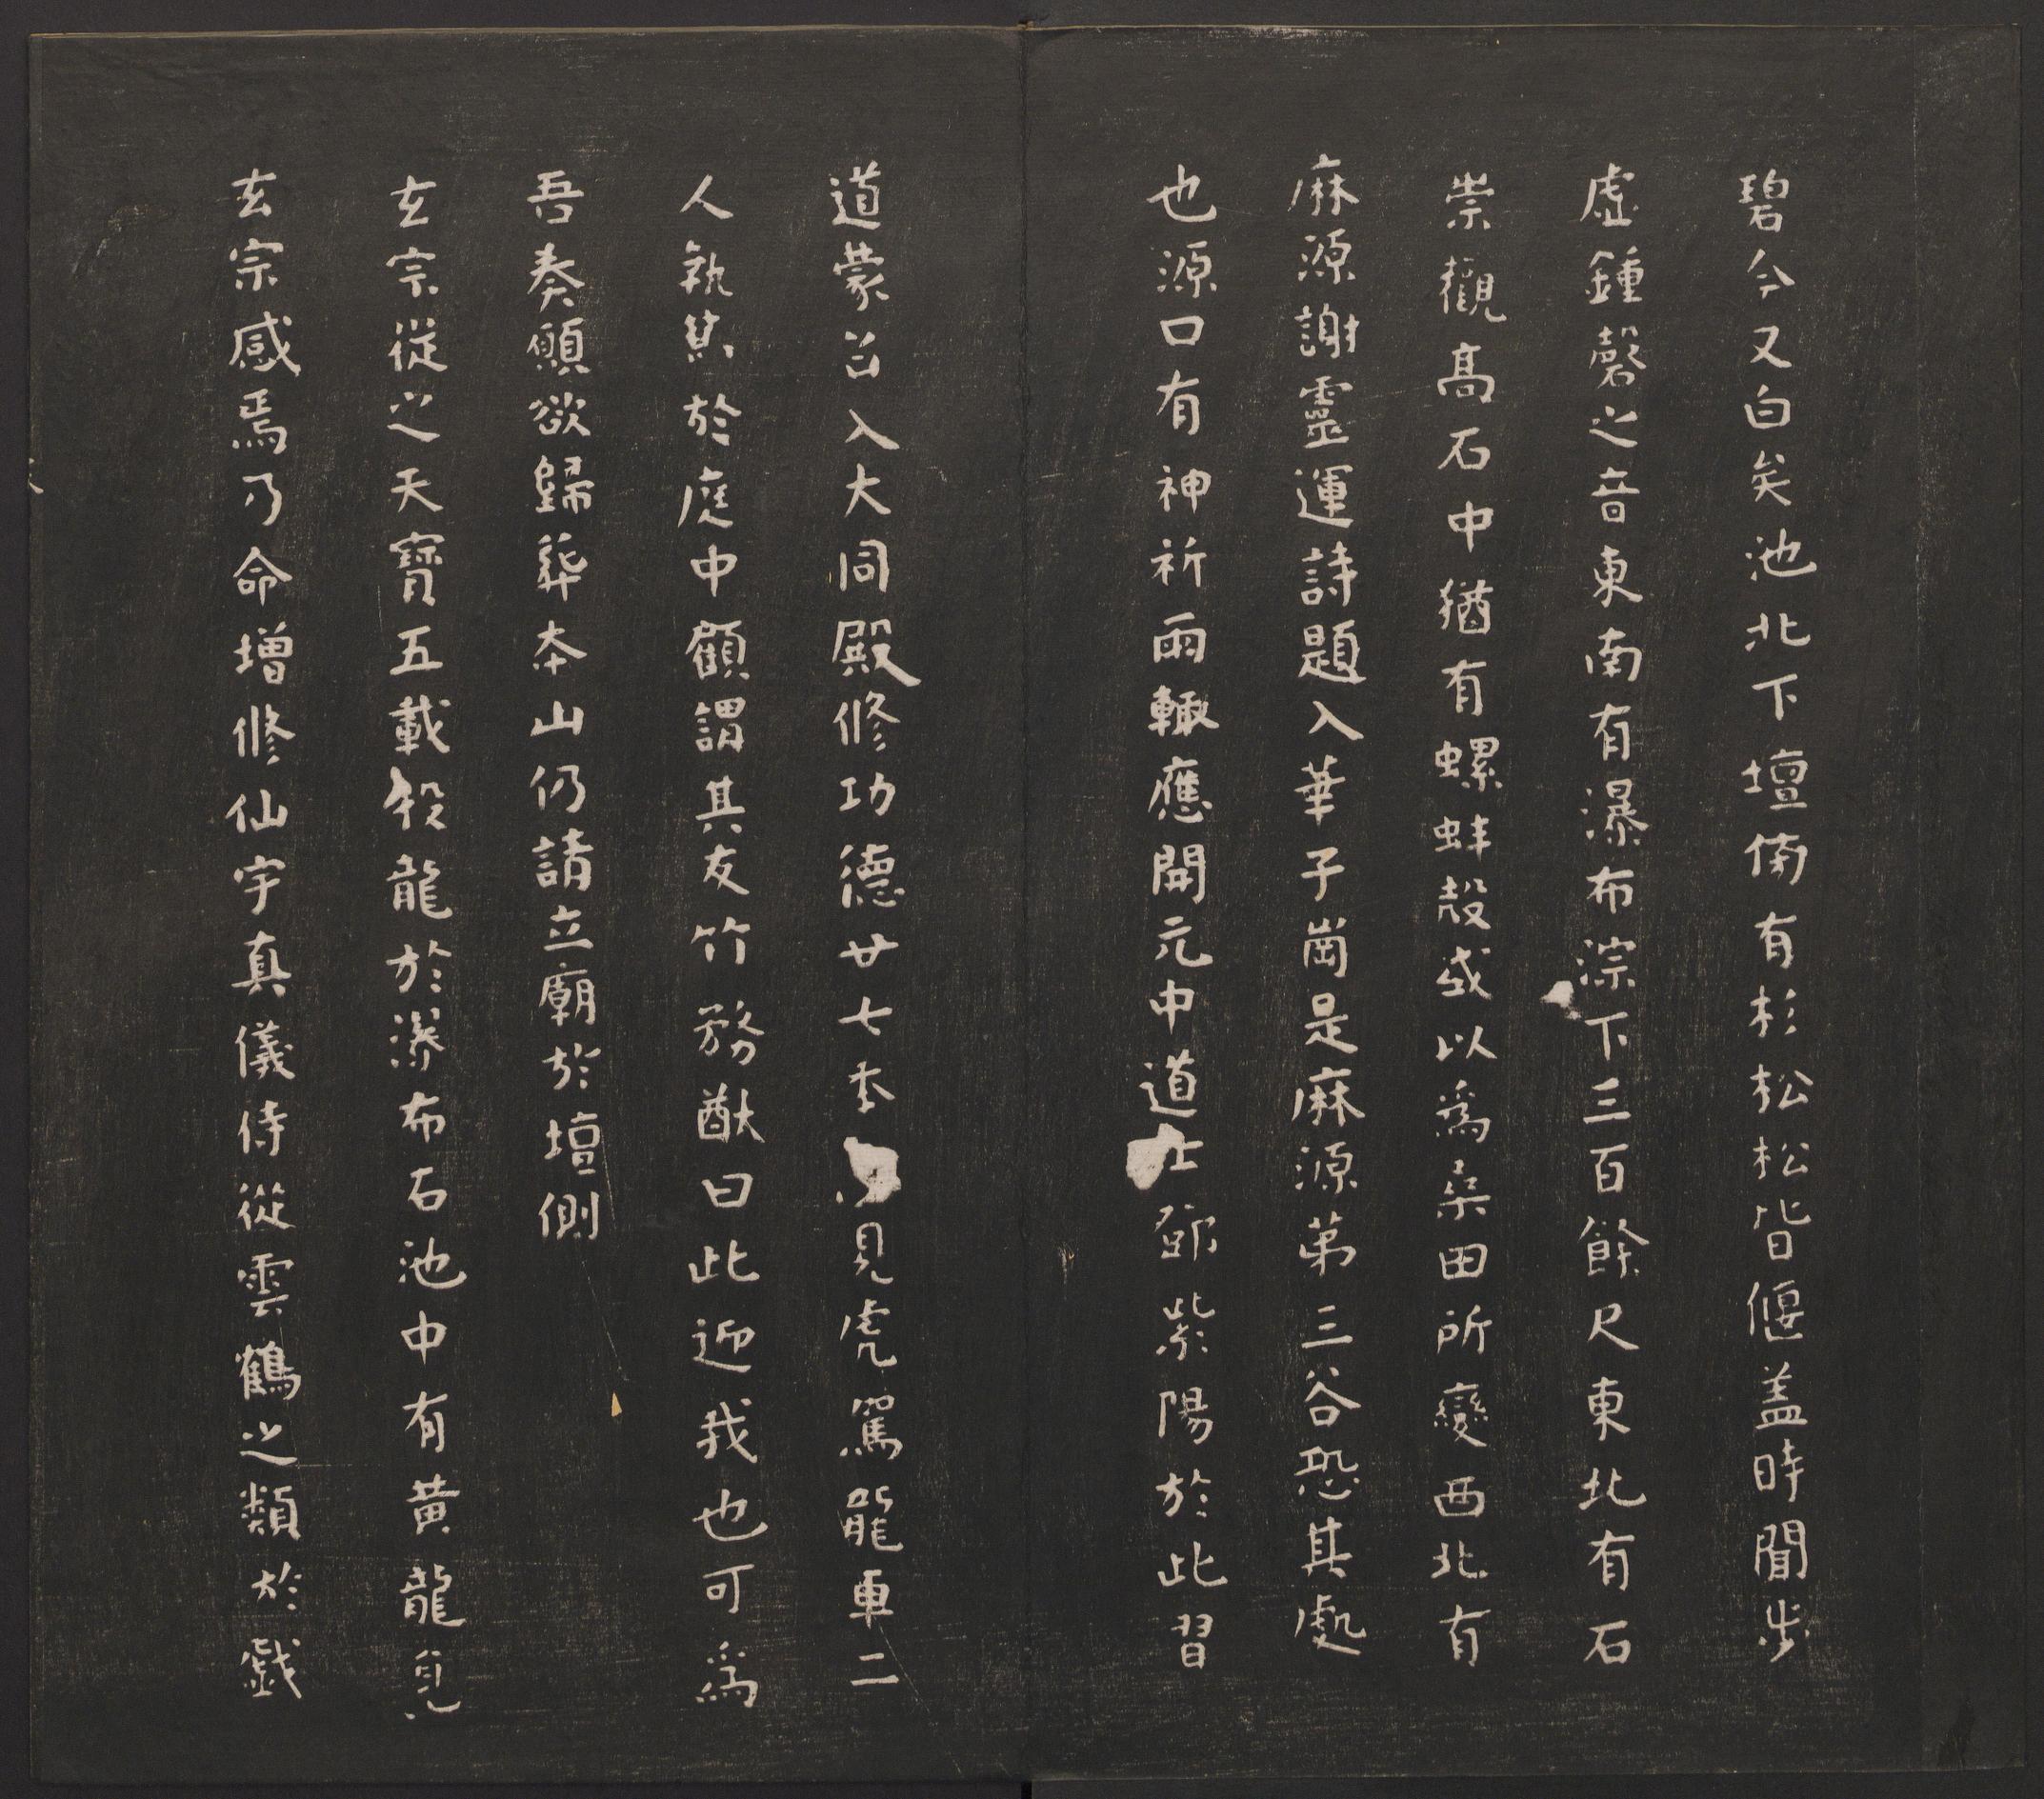 碧今又白矣池北下壇傍有杉松松皆偃蓋時聞步
虛鍾磬之音東南有瀑布淙下三百餘尺東北有石
崇觀高石中猶有螺蚌殼或以為桑田所變西北有
麻源謝靈運詩題入華子崗是麻源第三谷恐其處
也源口有神祈雨輙應開元中道士鄧紫陽於此習
道蒙召入大同殿修功德廿七年 見虎駕龍車二
人執其於庭中顧謂其友竹務猷曰此迎我也可為
吾奏願欲歸葬本山仍請立廟於壇側
玄宗從之天寶五載投龍於瀑布石池中有黃龍見
玄宗感焉乃命增修仙宇真儀侍從雲鶴之類於戲